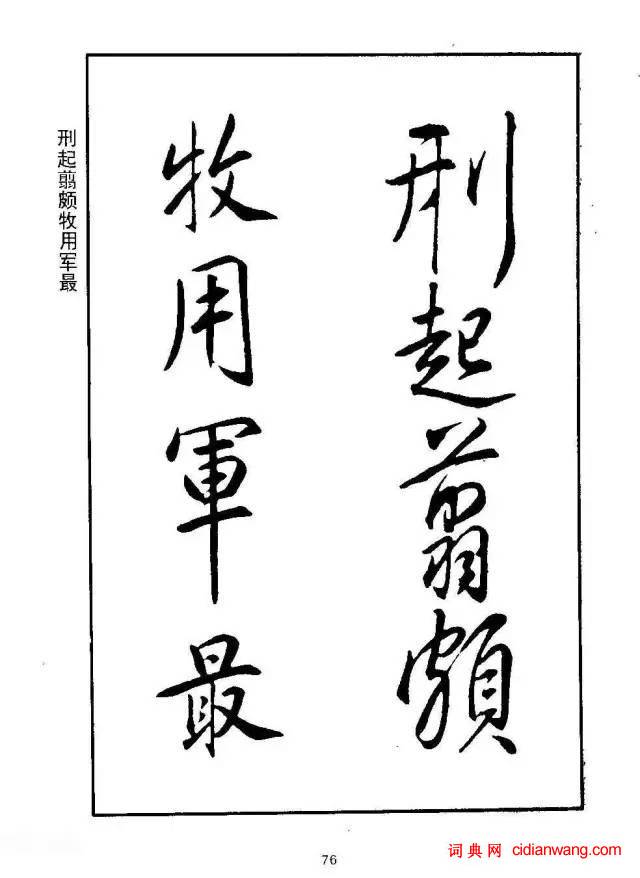 刑起翦頗
牧用軍最
刑起翦颇牧用军最
76
词典网 cidianwang.com